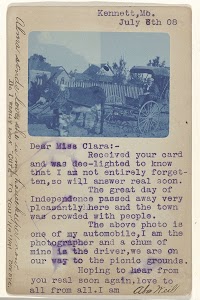 Kennett,Mo.
July 6th 08
Dear Miss Clara:-
Received your card
and was dee-lighted to know
that I am not entirely forget-
ten,so will answer real soon.
The great day of
Independence passed away very
pleasantly here and the town
was crowded with people.
The above photo is
one of my automobile,I am the
photographer and a chum of
mine is the driver,we are on
our way to the picnic grounds.
Hoping to hear from
you real soon again,love to
all from all.I am